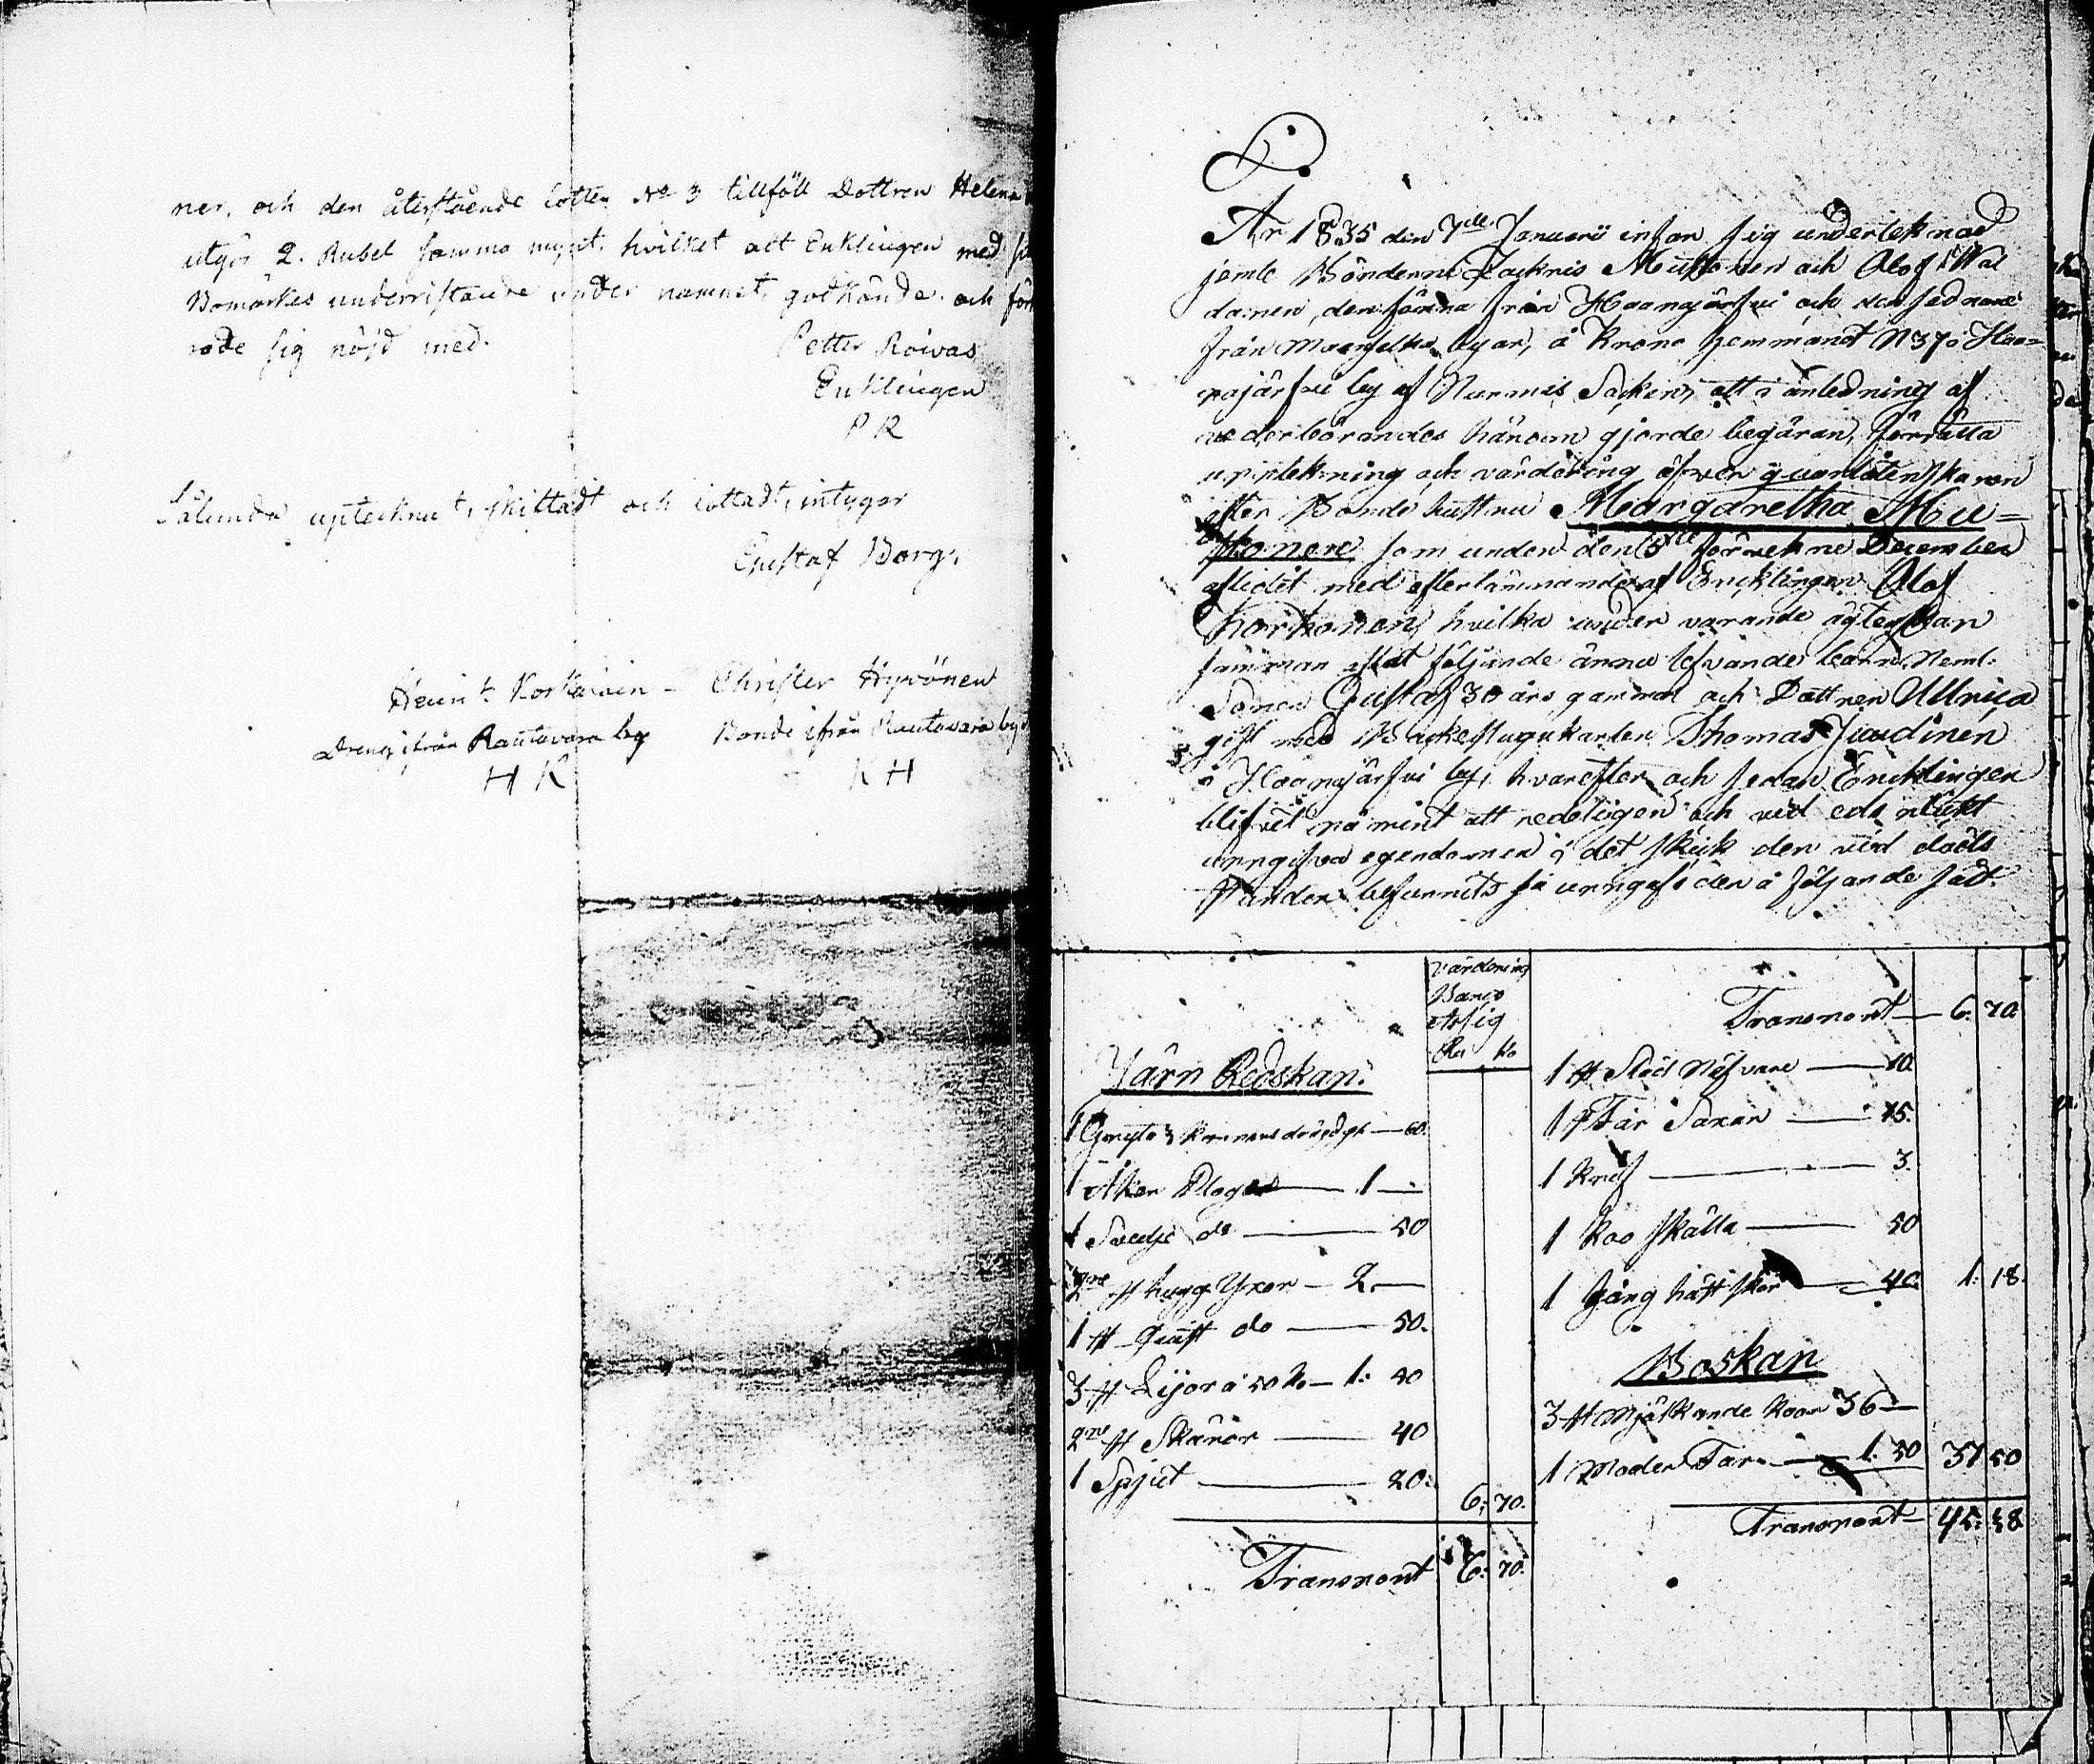 ner, och den återstående lotten No 3 tillföll Dottren Helena
utgör 2. Rubel samma mynt, hvilket allt Enklingen med
Bomärkes underristande under namnet, godkände och
rade sig nöjd med.
Petter Roivas
Enklingen
P R
Sålunda uptecknat, skiftadt och lottadt, intygar
Gustaf Borg.
Henr. Korkalain - Christer Hyvönen
Dreng ifrån Rautavara by Bonde ifrån Rautavara by
H K K H
År 1835 den 7de Januarii infan sig underteknad
jemte Bönderne Zackris Mustonen och Olof Wal
dainen, den förra från Haapajärfvi och den sednare
från byar, å Krono hemmanet N 37 Haa=
pajärfvi by af Nurmis Sacken, att i anledning af
vederbörandes härom gjorde begäran, förrätta
upptekning och värdering öfver qvarlåtenskapen
efter Bonde hustrun Margaretha Mu=
stonen som under den 5te förvekne December
aflidit med efterlämnande af Encklingen Olof
Korhonen, hvilka under varande ägtenskap
samman aflat följande ännu lefvande barn, Neml:
Sonen Gustaf 30 års gammal och Dottren Ullrica
gift med Backestugukarlen Thomas Juudinen
i Haapajärfvi by, hvarefter och sedan Encklingen
blifvit påmint att redeligen och vid eds plikt
uppgifva egendomen i det skick den vid döds
stunden befunnits så uppgafs den å följande sätt.
värdering
Banco
Assig
Ru Ko
Järn Redskap.
1 60.
1 Åker Plogar 1 -
1 Svedje do 50
2ne st hugg Yxor 2. -
1 st do 50.
3 st Lijor à 50 Ko 1: 50
2ne st Skäror 40
1 Spjut 20.
6: 70.
Transport 6: 70.
Transport 6. 70.
1 st Näfvare 10.
1 st Får Saxar 15.
1 Knif 3.
1 Koo skälla 50
1 gång häst skor 40. 1. 18.
Boskap
3 st Mjölkande koor 36 -
1 Moder Får 1. 50 37 50
Transport 45. 38